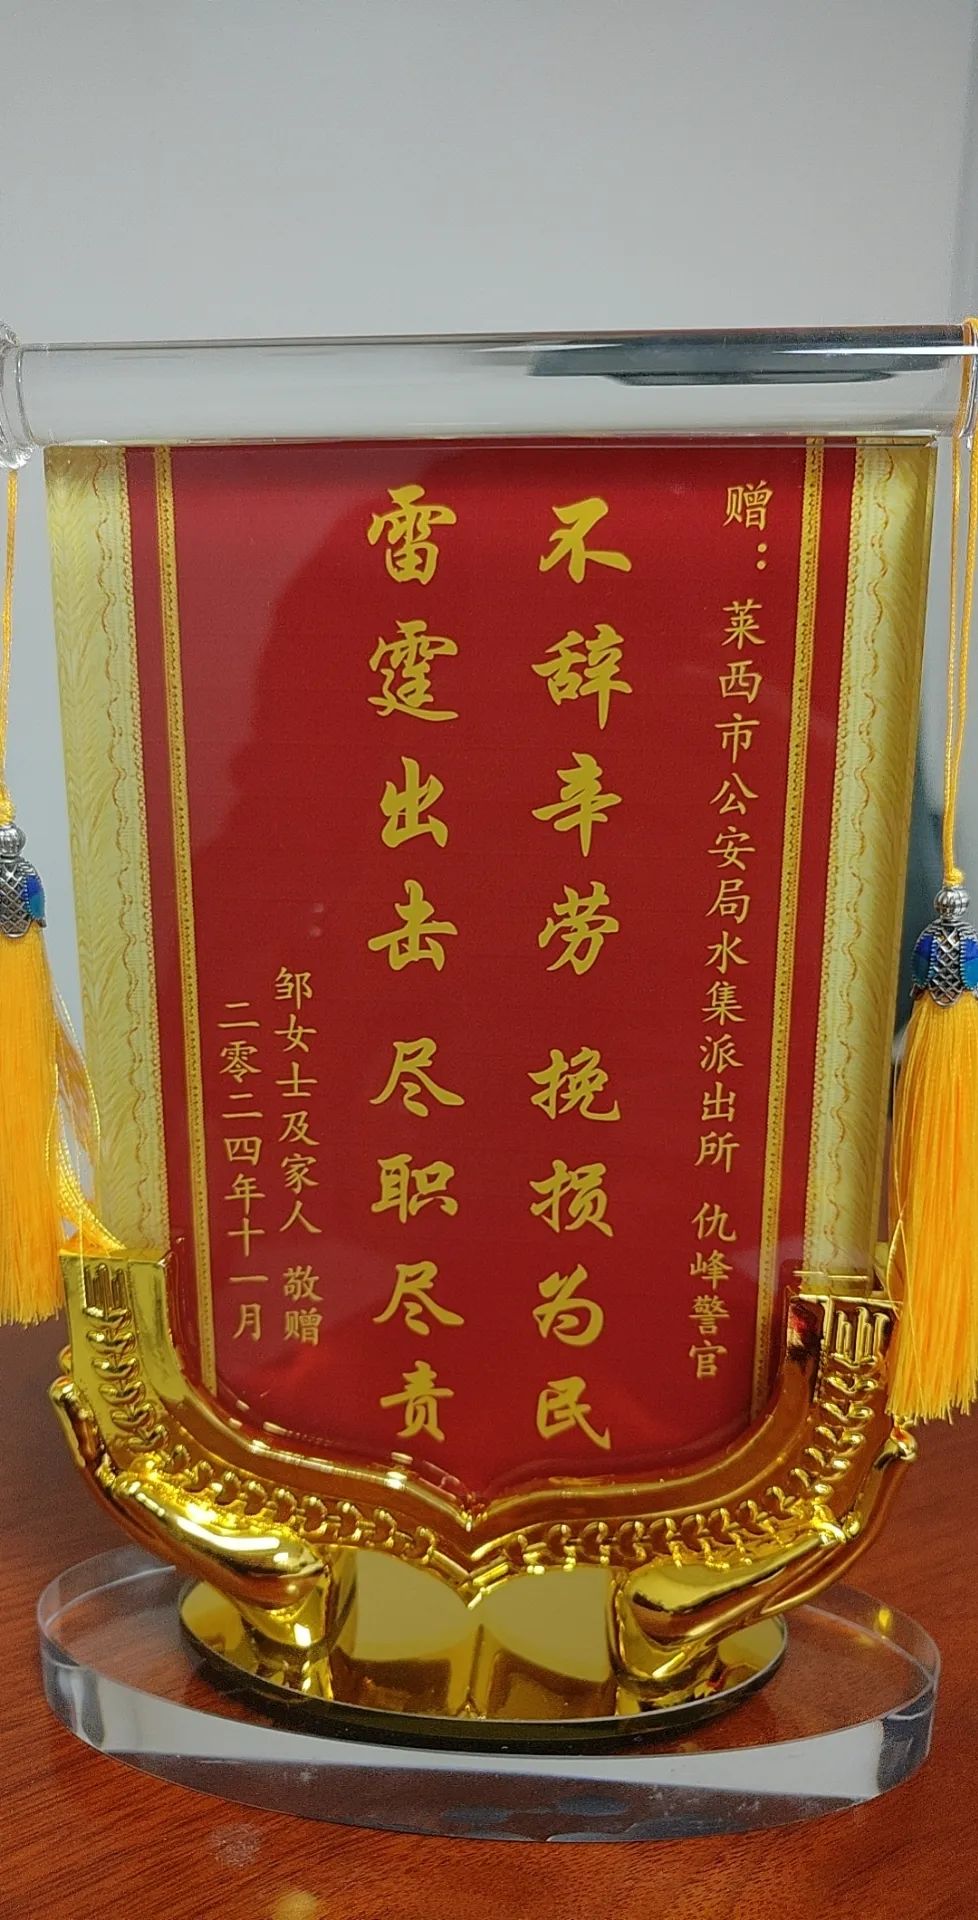 赠：莱西市公安局水集派出所 仇峰警官
不辞辛劳 挽损为民
雷霆出击 尽职尽责
邹女士及家人 敬赠
二零二四年十一月